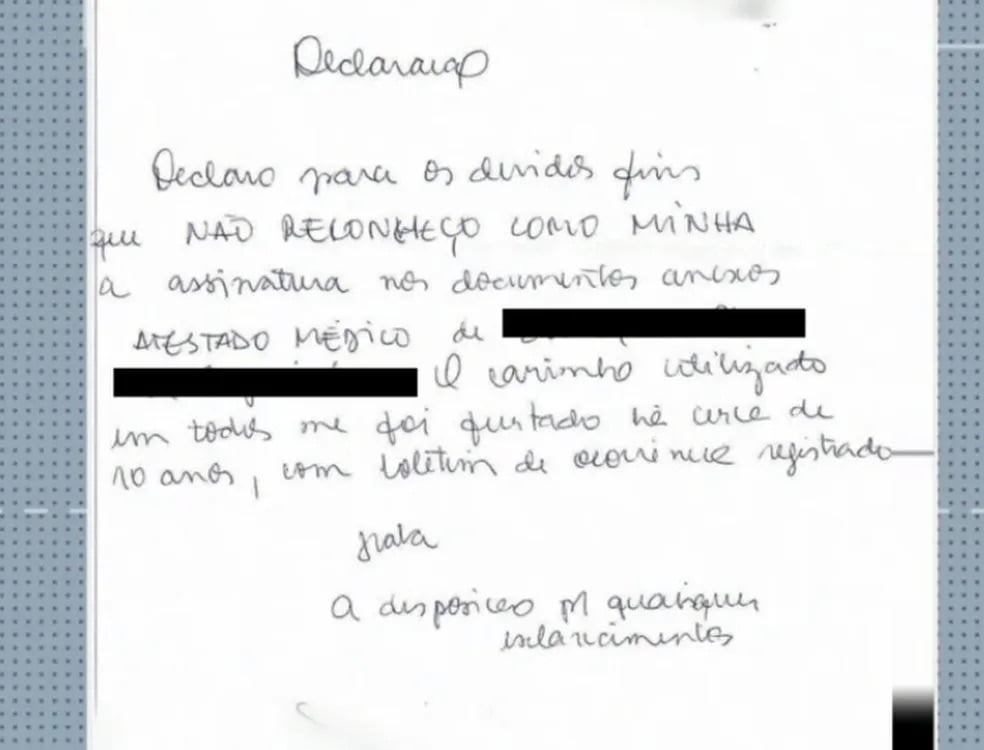 Declaração
Declaro para os devidos fins
que NÃO RECONHEÇO COMO MINHA
a assinatura nos documentos anexos
ATESTADO MÉDICO de
O carimbo utilizado
em todos me foi furtado há cerca de
10 anos, com boletim de ocorrência registrado
grata
A disposição p/ quaisquer
esclarecimentos